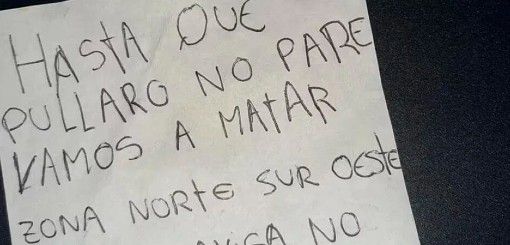 HASTA QUE
PULLARO NO PARE
VAMOS A MATAR
ZONA NORTE SUR OESTE
NO